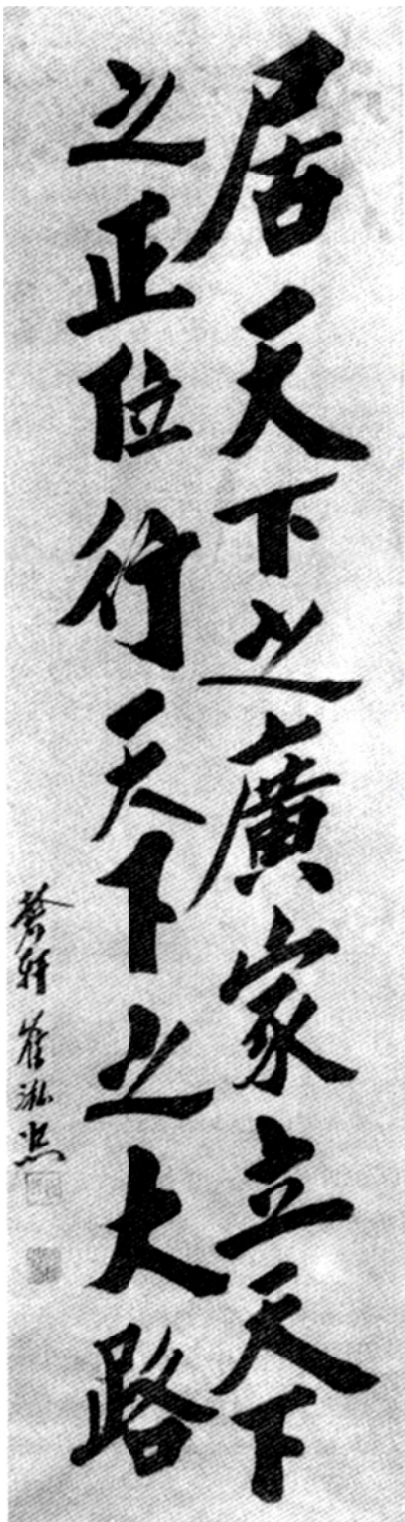 居天下之廣家立天下
之正位行天下之大路
崔泓熙